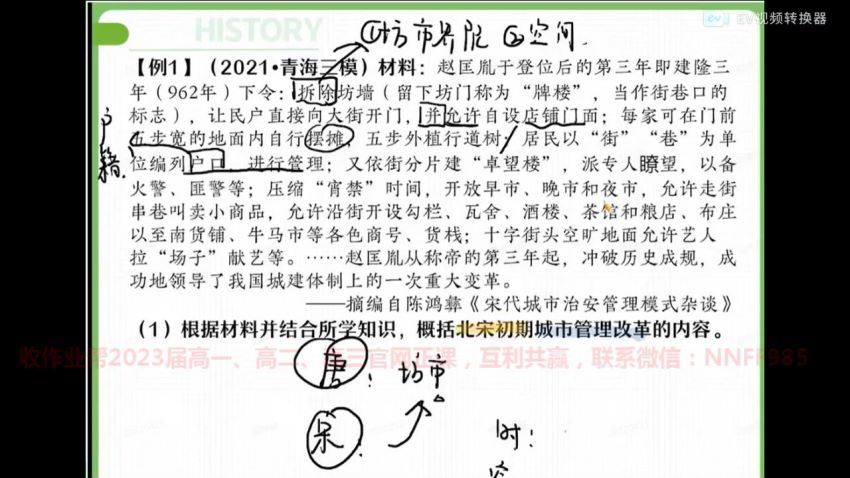 HISTORY
EV视频转换器
①坊市界限 ②空间.
【例1】（2021•青海三模）材料：赵匡胤于登位后的第三年即建隆三
年（962年）下令：拆除坊墙（留下坊门称为“牌楼”，当作街巷口的
标志），让民户直接向大街开门，并允许自设店铺门面；每家可在门前
五步宽的地面内自行摆摊，五步外植行道树，居民以“街”“巷”为单
位编列户口，进行管理；又依街分片建“卓望楼”，派专人瞭望，以备
火警、匪警等；压缩“宵禁”时间，开放早市、晚市和夜市，允许走街
串巷叫卖小商品，允许沿街开设勾栏、瓦舍、酒楼、茶馆和粮店、布庄
以至南货铺、牛马市等各色商号、货栈；十字街头空旷地面允许艺人
拉“场子”献艺等。……赵匡胤从称帝的第三年起，冲破历史成规，成
功地领导了我国城建体制上的一次重大变革。
——摘编自陈鸿彝《宋代城市治安管理模式杂谈》
户籍.
（1）根据材料并结合所学知识，概括北宋初期城市管理改革的内容。
收作业帮2023届高一、高二、高三官网正课，互利共赢，联系微信：NNFF985
唐：坊市
宋：
时：
空